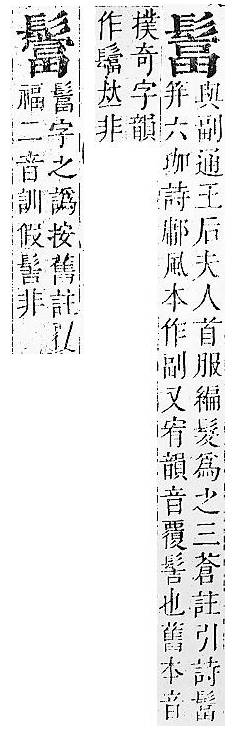 與副通王后夫人首服編髮爲之三蒼註引詩
笄六珈詩鄘風本作副又宥韻音覆髻也舊本音
撲奇字韻
作𠀤非
字之譌按舊註
福二音訓假髻非